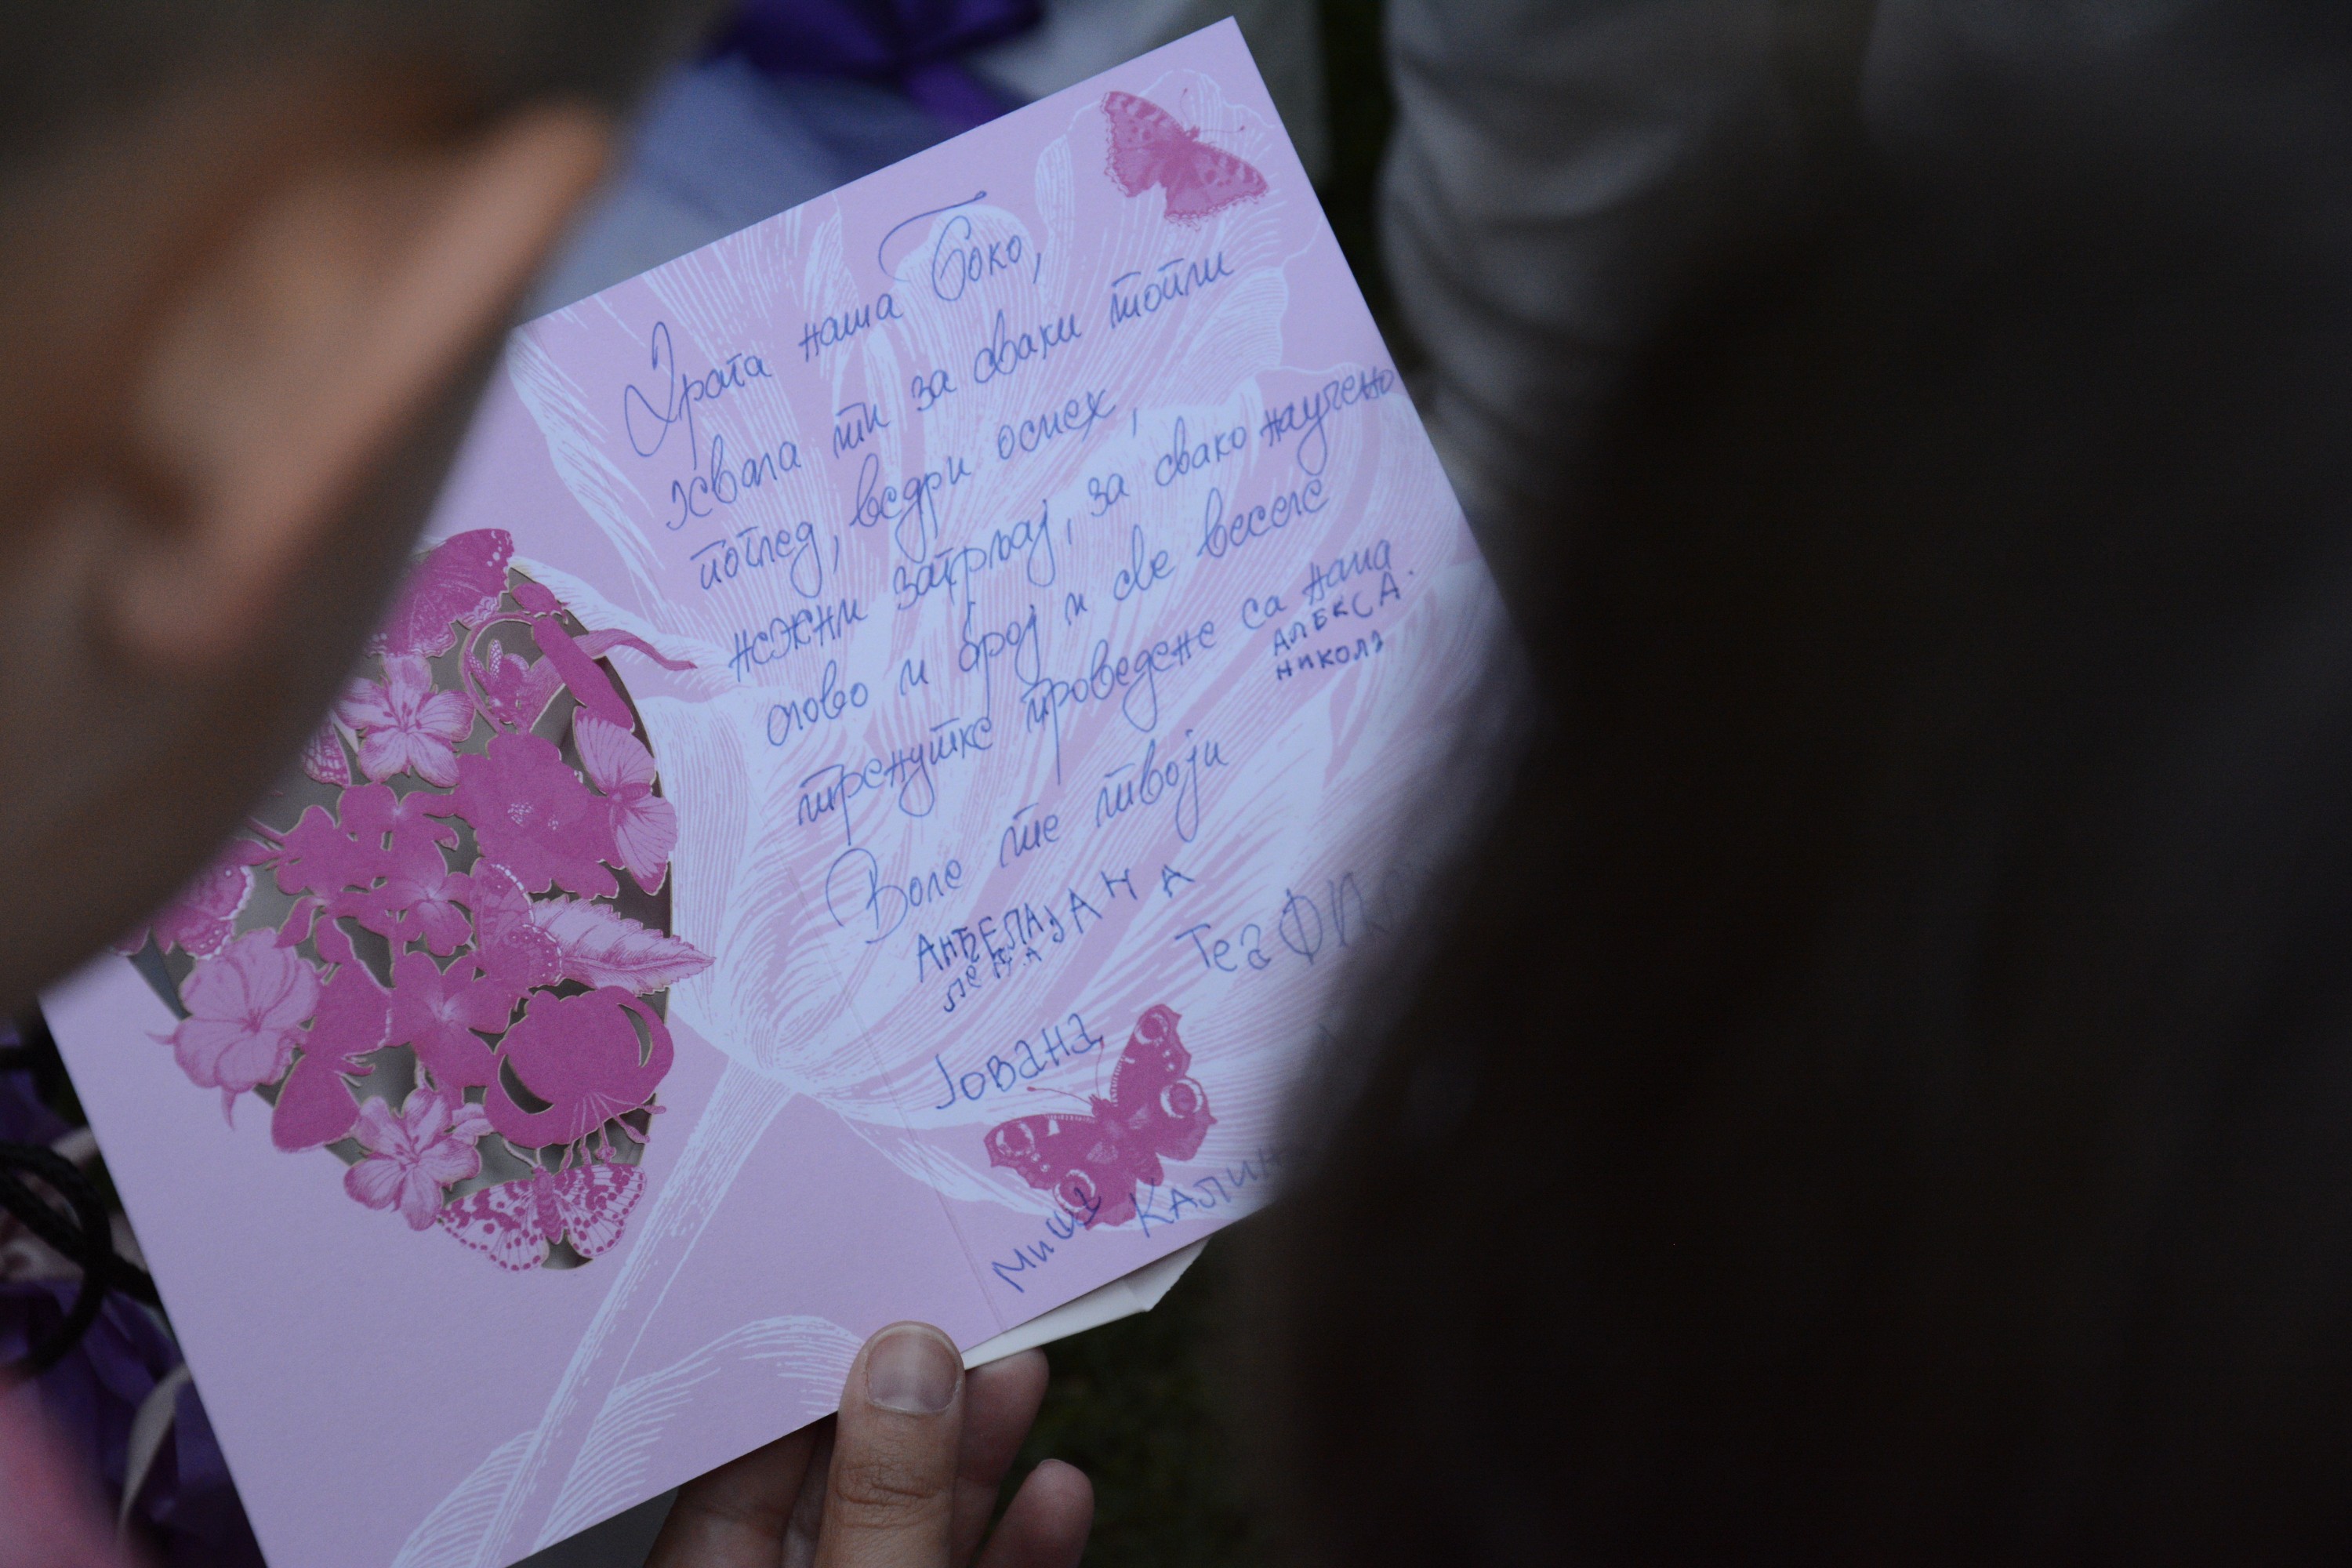 Драга наша Боко,
хвала ти за сваки топли
поглед, ведри осмех,
нежни загрљај, за свако научено
слово и број и све веселе
тренутке проведене са нама
Воле те твоји
АЛЕКСА.
НИКОЛА
АНЂЕЛА
ЈАНА
ЛЕНКА
Теа
Јована
МИША